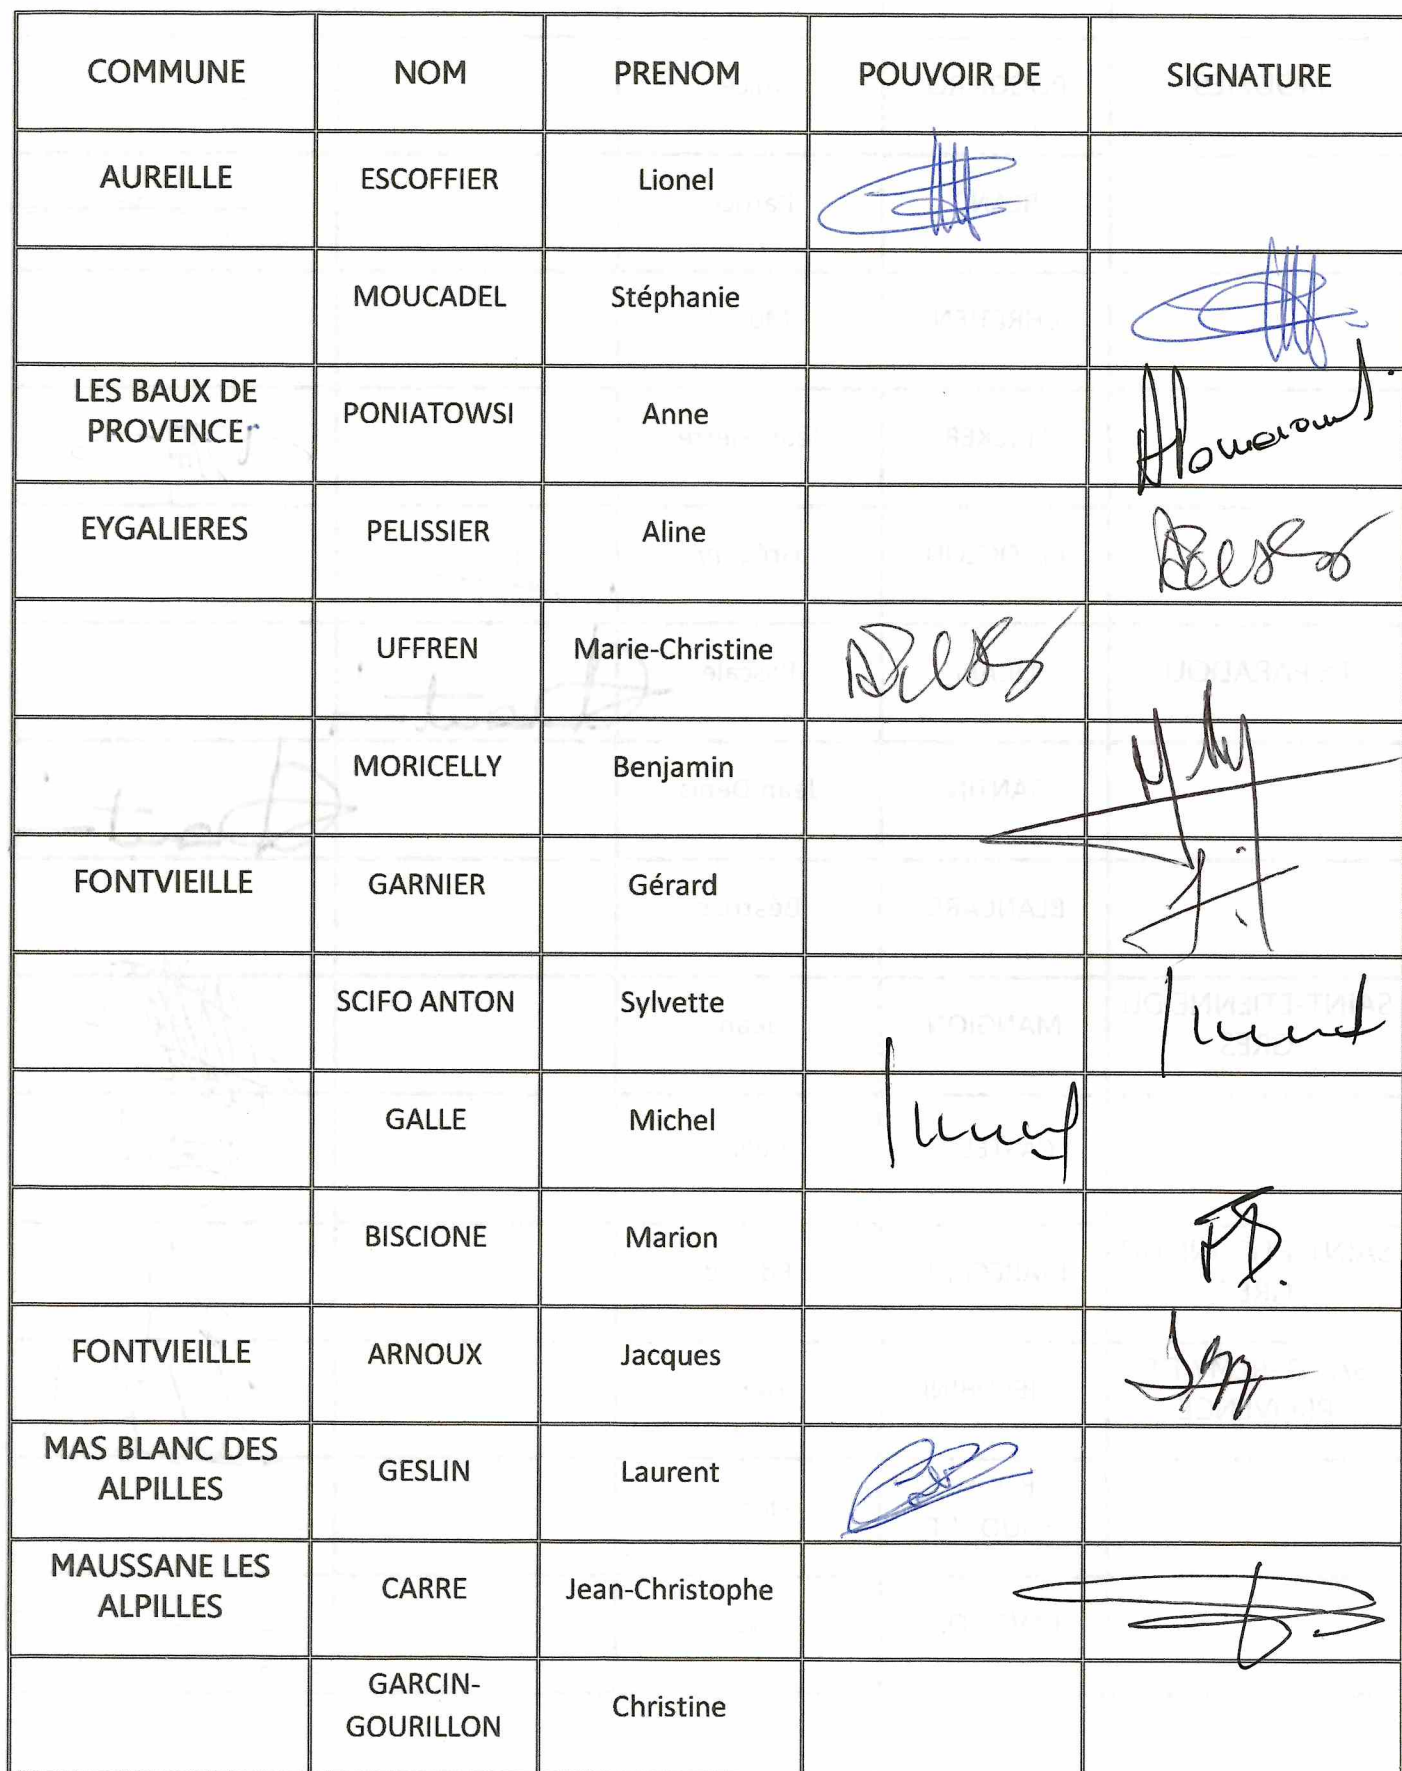 COMMUNE NOM PRENOM POUVOIR DE SIGNATURE
AUREILLE ESCOFFIER Lionel
MOUCADEL Stéphanie
LES BAUX DE
PROVENCE PONIATOWSI Anne
EYGALIERES PELISSIER Aline
UFFREN Marie-Christine
MORICELLY Benjamin
FONTVIEILLE GARNIER Gérard
SCIFO ANTON Sylvette
GALLE Michel
BISCIONE Marion
FONTVIEILLE ARNOUX Jacques
MAS BLANC DES
ALPILLES GESLIN Laurent
MAUSSANE LES
ALPILLES CARRE Jean-Christophe
GARCIN-
GOURILLON Christine